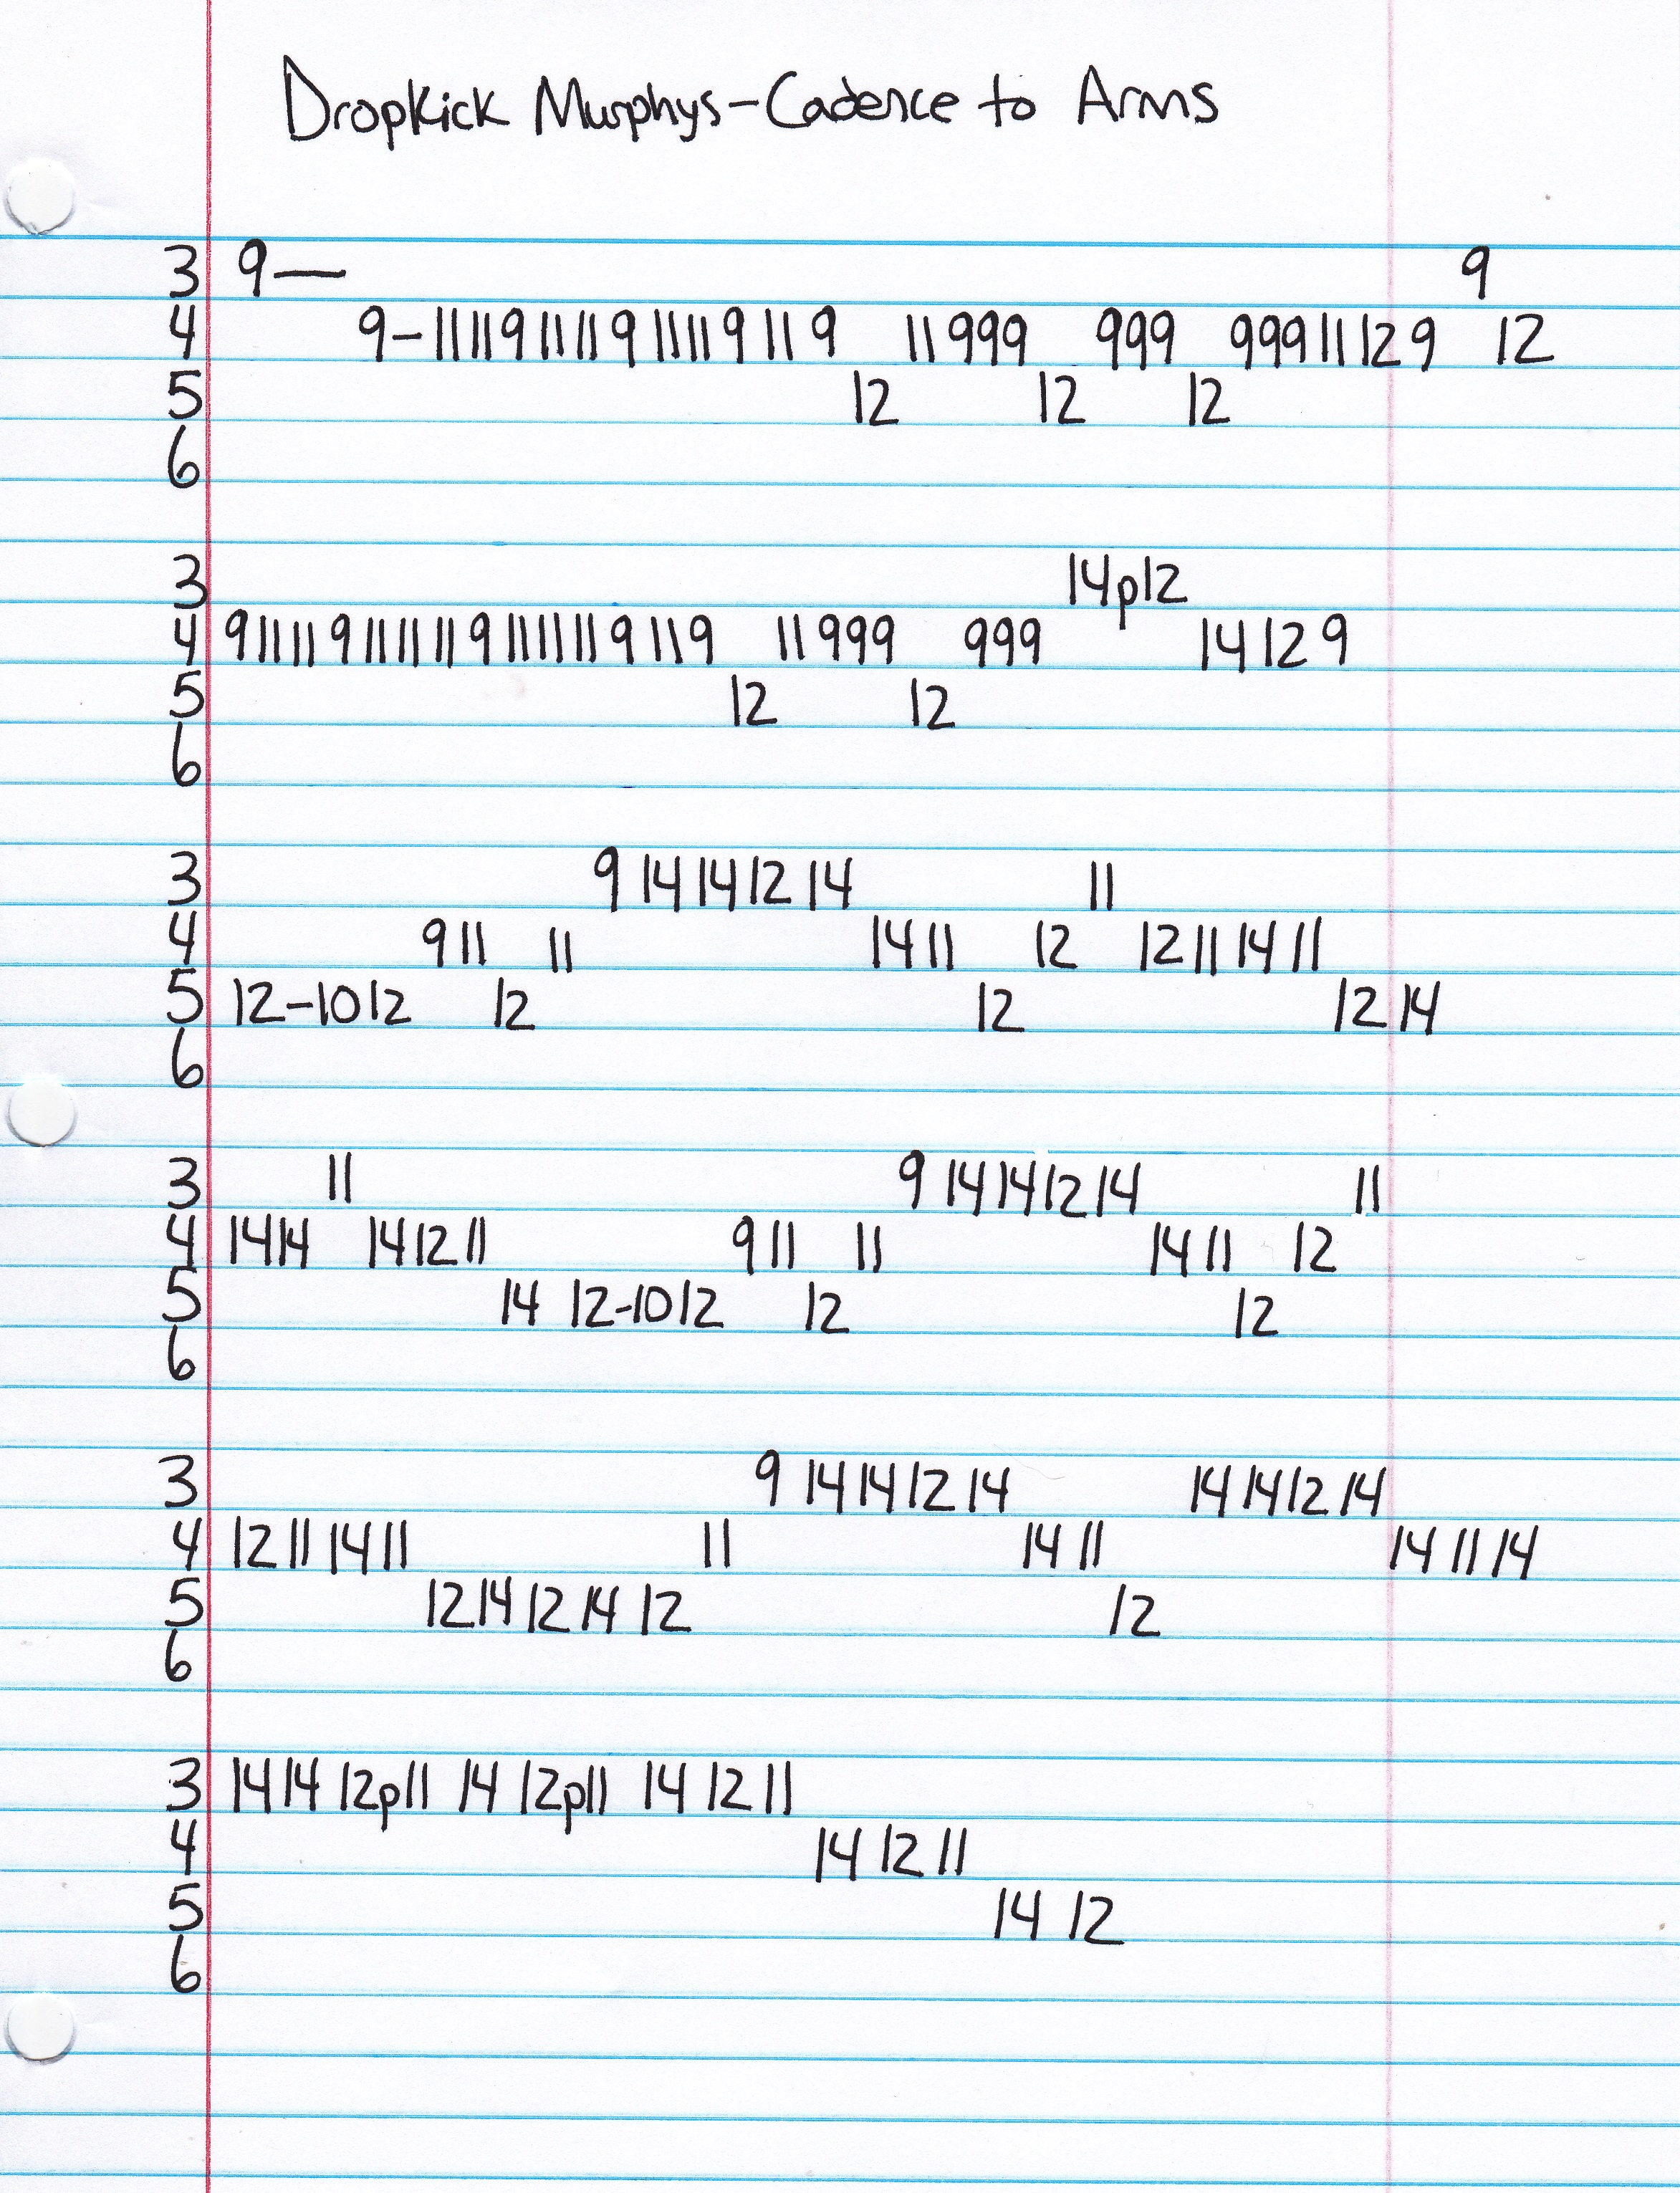 Dropkick Murphys-Cadence to Arms
3 9— 9
4 9-11 11 9 11 11 9 11 11 9 11 9 11 999 999 999 11 12 9 12
5 12 12 12
6
3 14p12
4 9 11 11 9 11 11 11 9 11 11 11 9 11 9 11 999 999 14 12 9
5 12 12
6
3 9 14 14 12 14 11
4 9 11 11 14 11 12 12 11 14 11
5 12-10 12 12 12 12 14
6
3 11 9 14 14 12 14 11
4 14 14 14 12 11 9 11 11 14 11 12
5 14 12-10 12 12 12
6
3 9 14 14 12 14 14 14 12 14
4 12 11 14 11 11 14 11 14 11 14
5 12 14 12 14 12 12
6
3 14 14 12p11 14 12p11 14 12 11
4 14 12 11
5 14 12
6